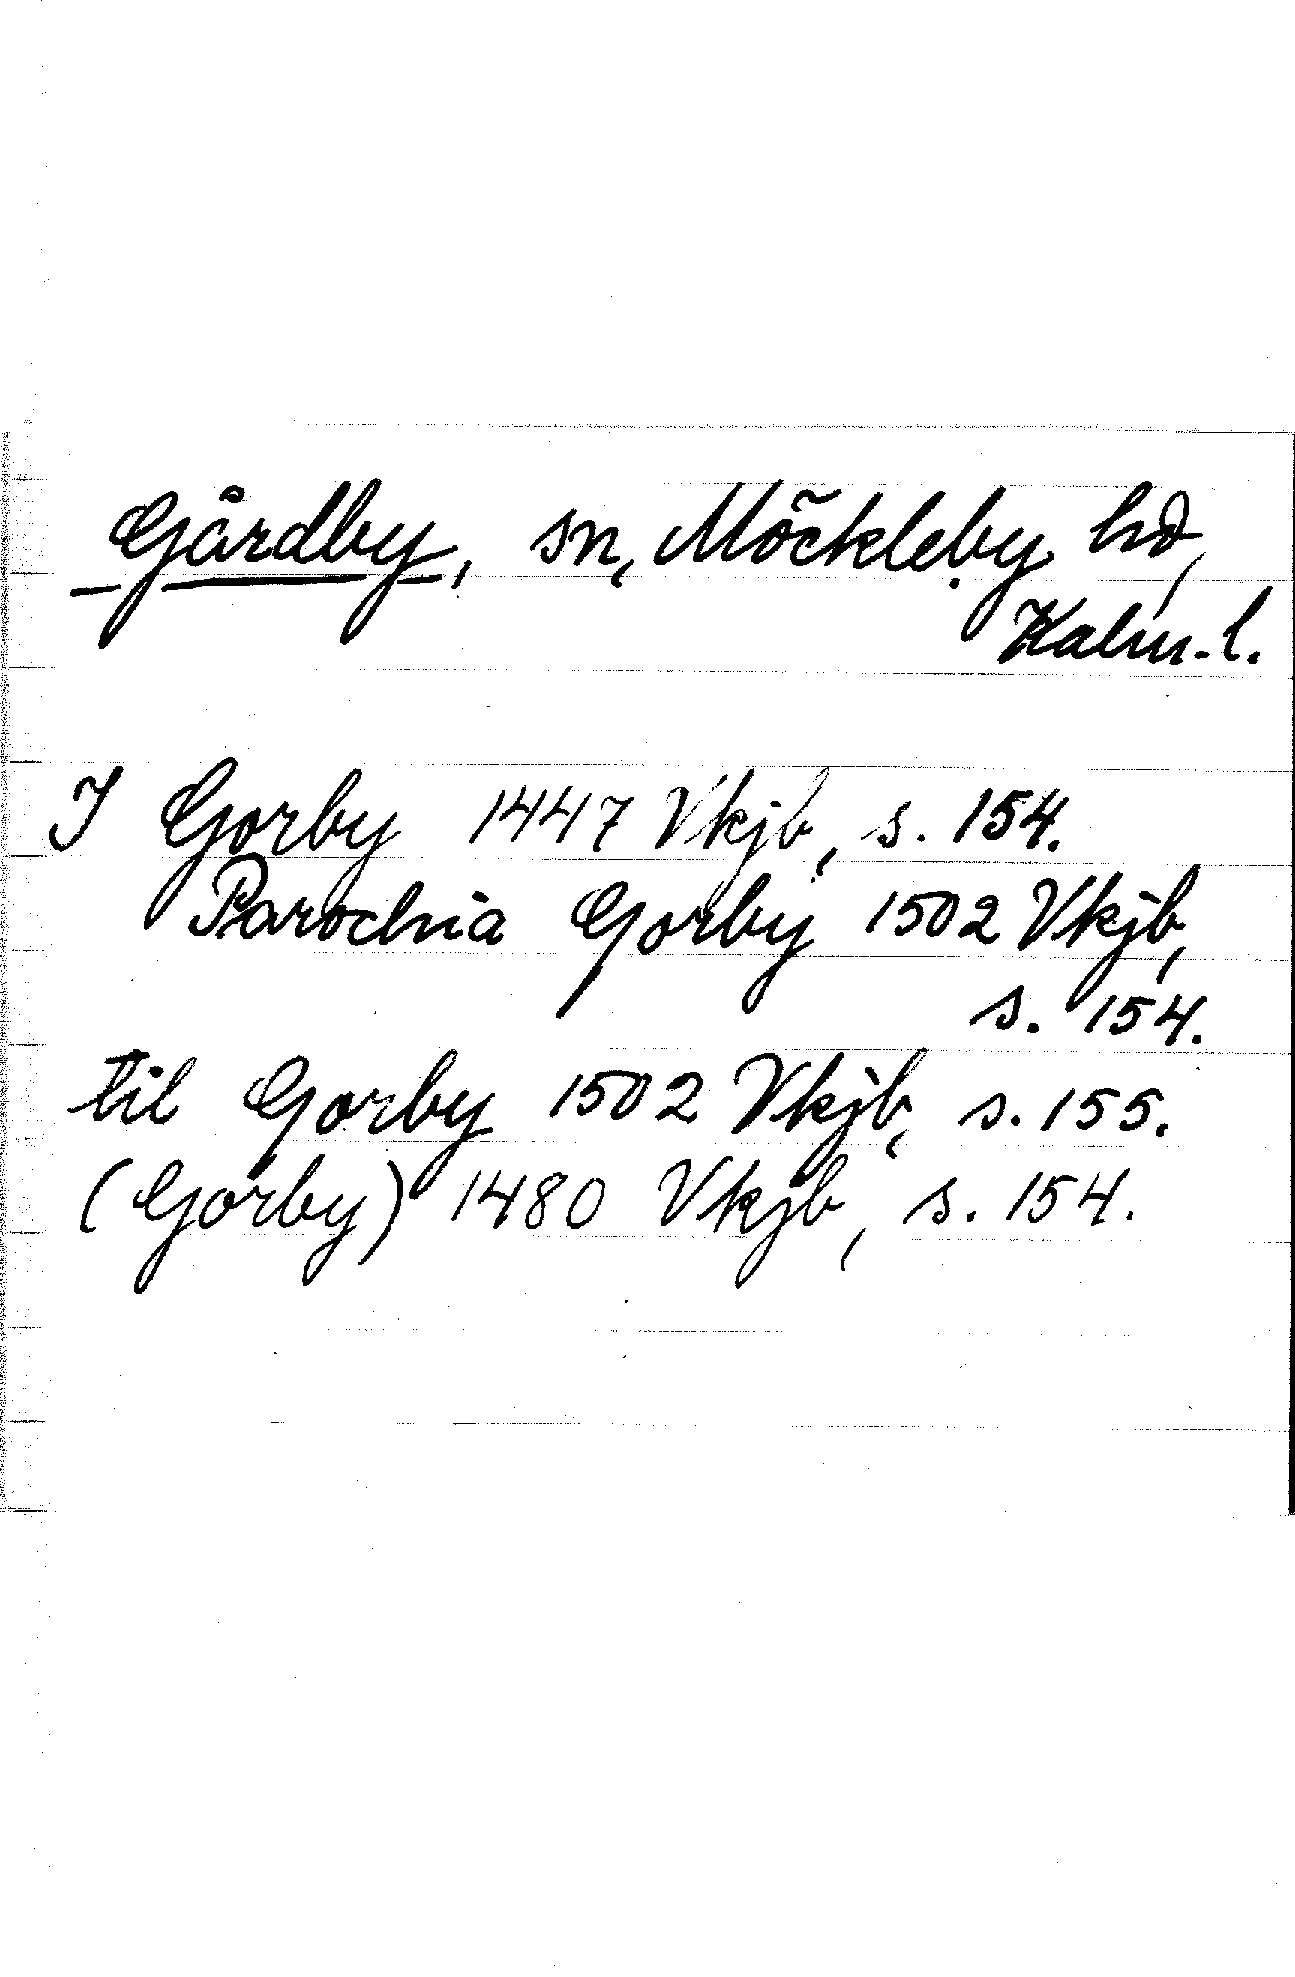 Gårdby, sn, Möckleby hd,
Kalm. l.
I Gorby 1447 Vkjb, s. 154.
Parochia Gorby 1502 Vkjb,
s. 154.
til Gorby 1502 Vkjb, s. 155.
(Gorby) 1480 Vkjb, s. 154.